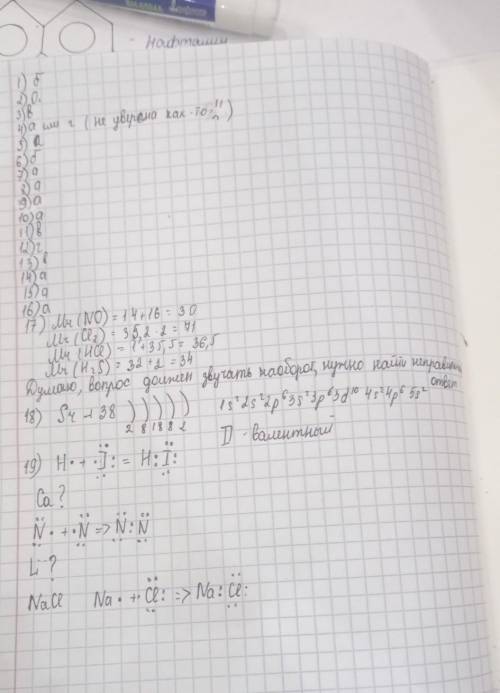 - Нафталин
1) б
2) а
3) в
4) а или г (не уверена как-то)
5) а
6) б
7) а
8) а
9) а
10) а
11) в
12) г
13) в
14) а
15) а
16) а
17) Mr (NO) = 14+16 = 30
Mr (Cl₂) = 35,2·2 = 71
Mr (HCl) = 1+35,5 = 36,5
Mr (H₂S) = 32+2 = 34
Думаю, вопрос должен звучать наоборот, нужно найти неправильный ответ
18) Sr +38 ) ) ) ) ) 1s² 2s² 2p⁶ 3s² 3p⁶ 3d¹⁰ 4s² 4p⁶ 5s²
2 8 18 8 2
II - валентный
19) H· + ·I: = H:I:
Ca ?
N· + ·N => N:N
Li - ?
NaCl Na· + ·Cl: => Na:Cl: